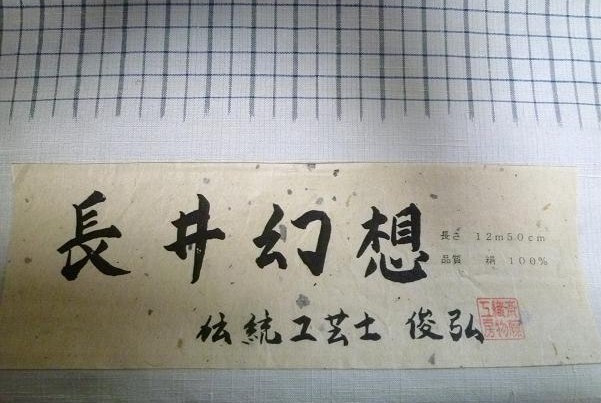 長井幻想
長さ 12m50cm
品質 絹 100%
伝統工芸士 俊弘